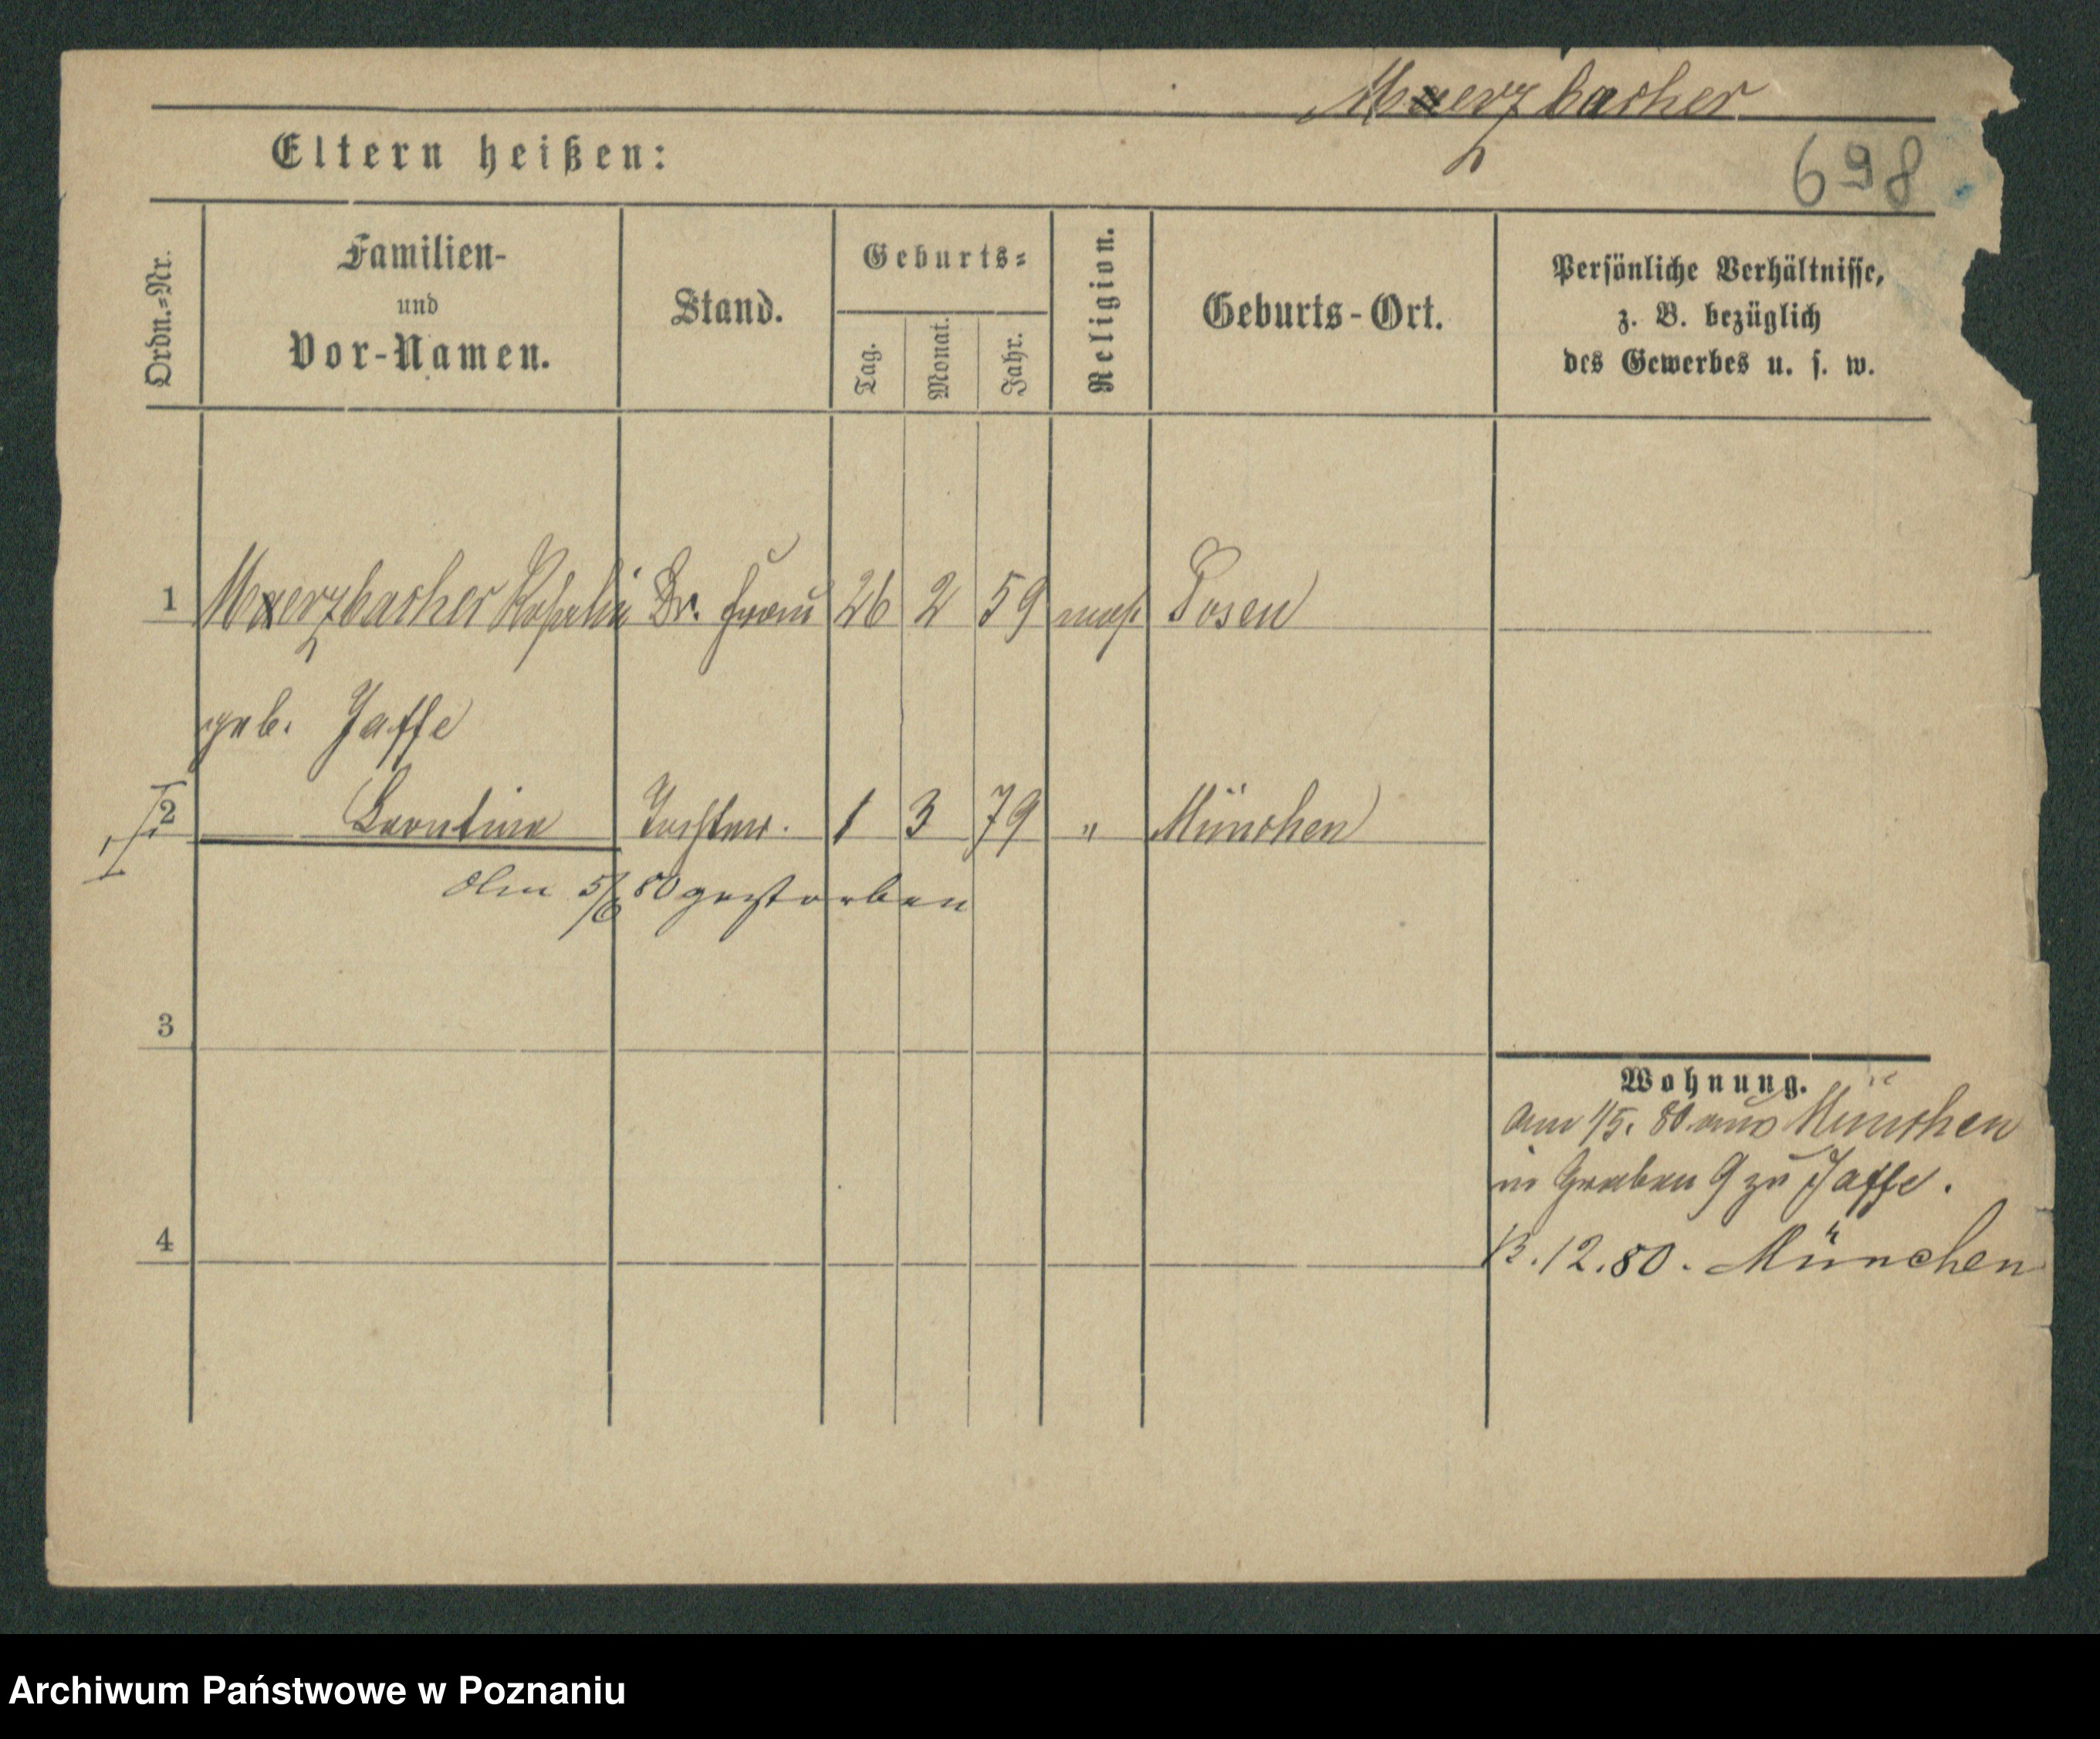 Merzbacher
Eltern heißen:
698
Ordn.=Nr.
Familien-
und
Vor-Namen.
Stand.
Geburts=
Tag.
Monat.
Jahr.
Religion.
Geburts-Ort.
Persönliche Verhältnisse,
z. B. bezüglich
des Gewerbes u. s. w.
1 Merzbacher Rosalie Dr. Frau 26 2 59 mos Posen
geb. Jaffe
2 Leontine Tochter. 1 3 79 " München
Am 5/6 80 gestorben
3
Wohnung.
am 1/5. 80 aus München
in Graben 9 zu Jaffe.
4
13.12.80. München
Archiwum Państwowe w Poznaniu